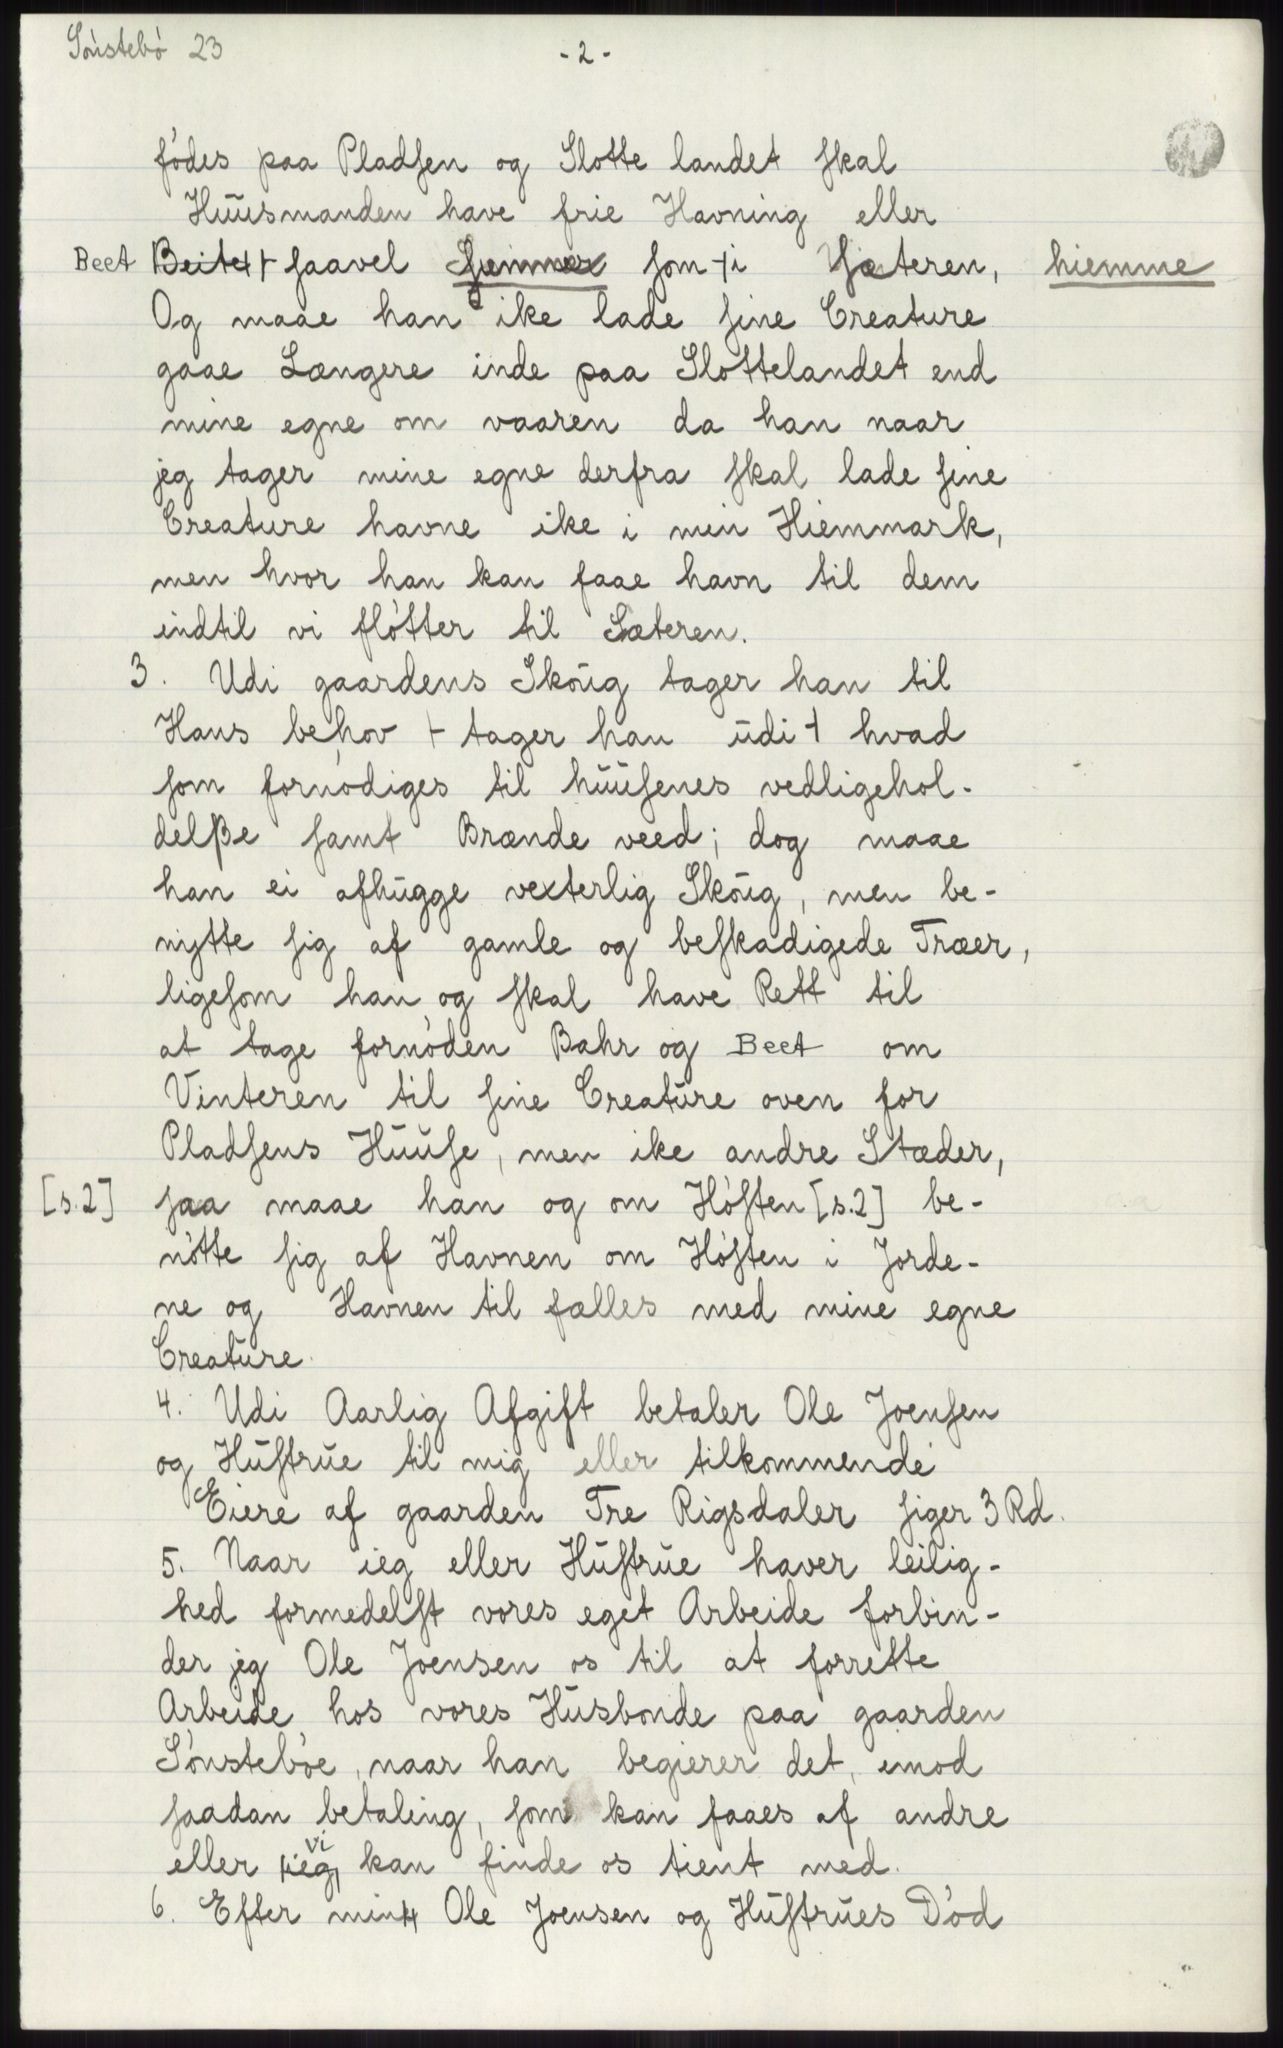 Sónstebó 23
- 2 -
fódes paa Pladſen og Slotte landet ſkal
Húúsmanden have frie Havning eller
Beet Beitet ⊢ ſaavel som ⊣ i Sæteren, hiemme
Og maae han ike lade ſine Creature
gaae Længere inde paa Slottelandet end
mine egne om vaaren da han naar
jeg tager mine egne derfra ſkal lade ſine
Creature havne ike i min Hiemmark,
men hvor han kan faae havn til dem
indtil vi flótter til Sæteren.
3. Udi gaardens Skóúg tager han til
Hans behov ⊢ tager han údi ⊣ hvad
ſom fornódiges til húúſenes vedligehol-
delße ſamt Brænde veed; dog maae
han ei afhúgge vexterlig Skóúg, men be-
nytte ſig af gamle og beſkadigede Træer,
ligeſom han og ſkal have Rett til
at tage fornóden Bahr og Beet om
Vinteren til ſine Creatúre oven for
Pladſens Húúſe, men ike andre Stæder,
[s.2] ſaa maae han og om Hóſten [s.2] be-
nótte ſig af Havnen om Hóſten i Jorde-
ne og Havnen til fælles med mine egne
Creatúre.
4. Udi Aarlig Afgift betaler Ole Joenſen
og Húſtrúe til mig eller tilkommende
Eiere af gaarden Tre Rigsdaler ſiger 3 Rd.
5. Naar ieg eller Húſtrúe haver leilig-
hed formedelſt vores eget Arbeide forbin-
der jeg Ole Joensen os til at forrette
Arbeide hos vores Húsbonde paa gaarden
Sónstebóe, naar han begierer det, imod
ſaadan betaling, ſom kan faaes af andre
vi
eller ieg kan finde os tient med.
6. Efter min Ole Joensen og Húſtrúes Dód